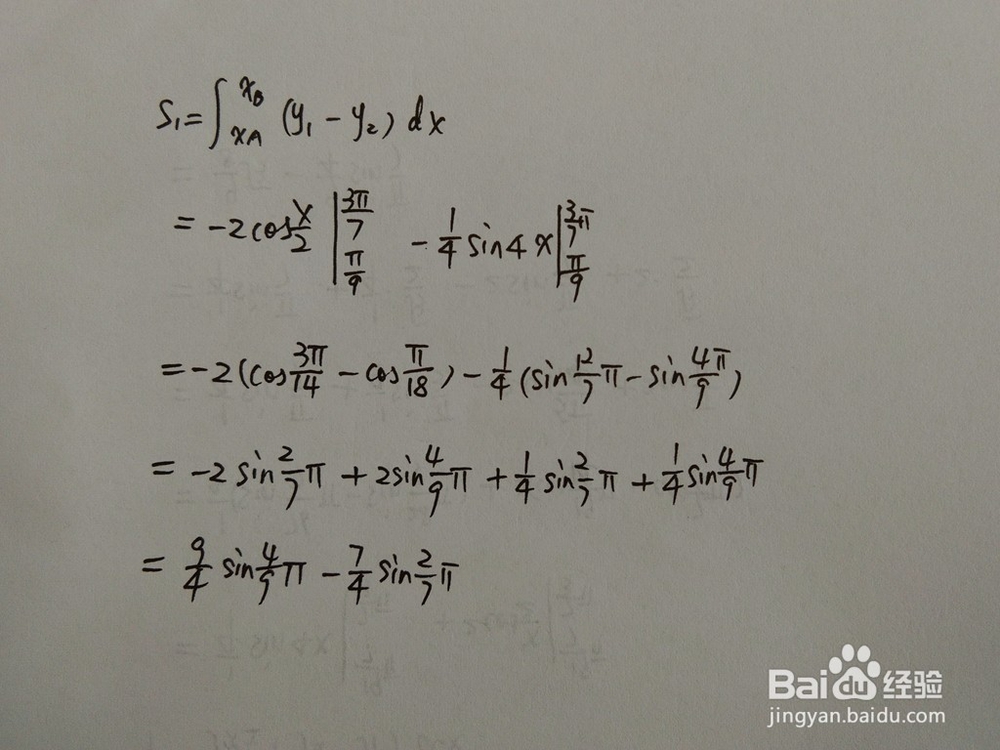 S₁=∫_{xA}^{xB} (y₁ - y₂) dx
= -2cos x/2 |_{π/9}^{3π/7} - 1/4 sin4x |_{π/9}^{3/7 π}
= -2(cos 3π/14 - cos π/18) - 1/4 (sin 12/7 π - sin 4π/9)
= -2 sin 2/7 π + 2sin 4/9 π + 1/4 sin 2/7 π + 1/4 sin 4/9 π
= 9/4 sin 4/9 π - 7/4 sin 2/7 π
Baidu 经验
jingyan.baidu.com